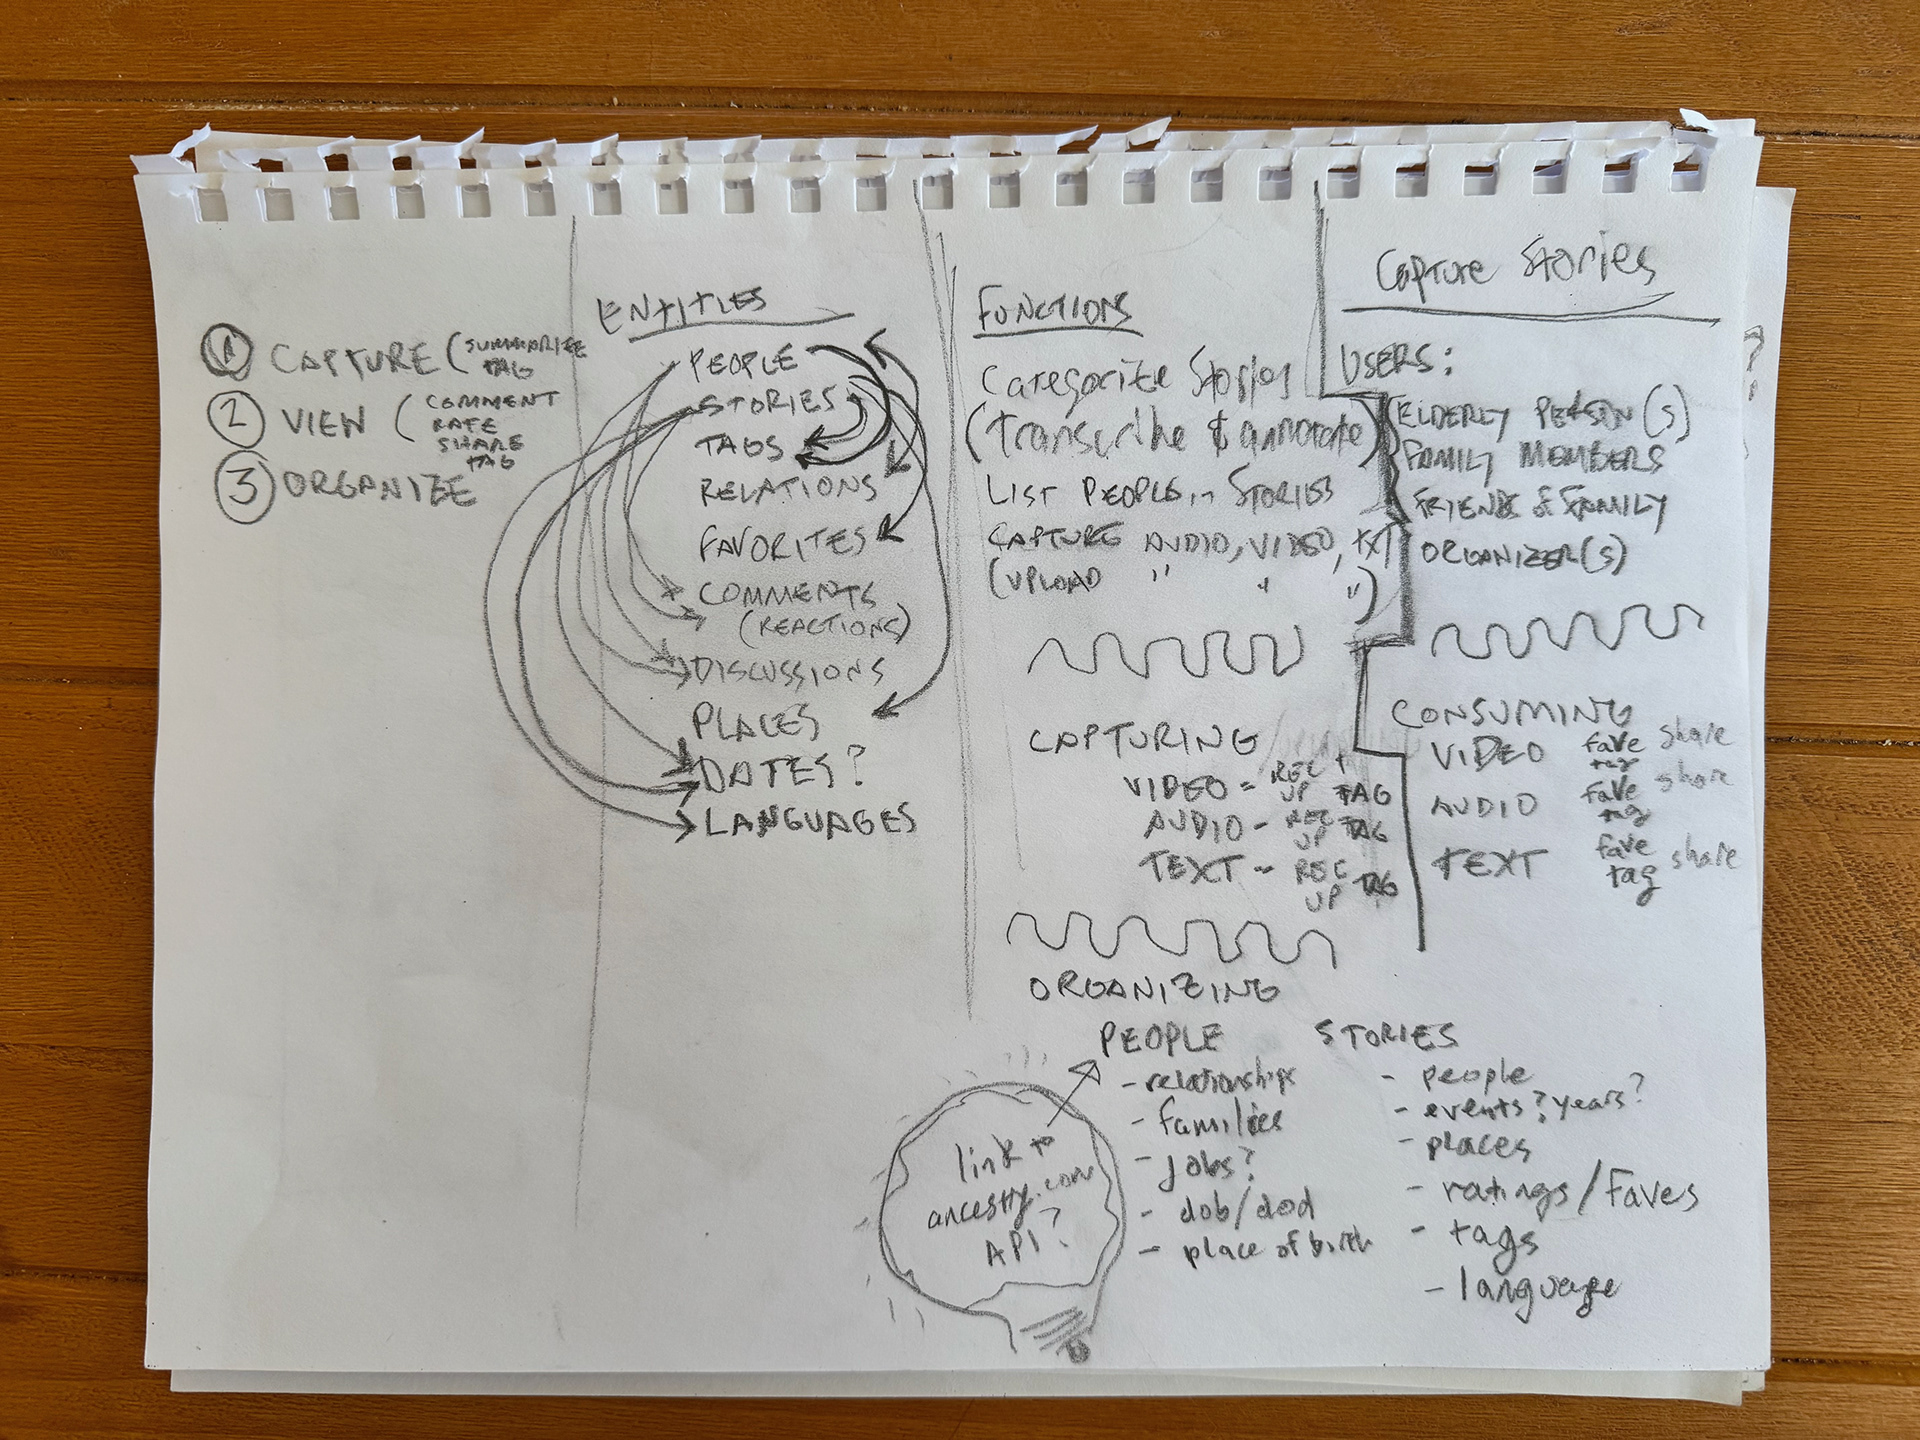 ① CAPTURE (SUMMARIZE
TAG
② VIEW (COMMENT
RATE
SHARE
TAG
③ ORGANIZE
ENTITIES
PEOPLE
STORIES
TAGS
RELATIONS
FAVORITES
COMMENTS
(REACTIONS)
DISCUSSIONS
PLACES
DATES?
LANGUAGES
FUNCTIONS
Categorize Stories
(transcribe & annotate)
LIST PEOPLE, STORIES
CAPTURE AUDIO, VIDEO, TXT
(UPLOAD " " ")
CAPTURING
VIDEO = REC + TAG
UP
AUDIO - REC TAG
UP
TEXT - REC TAG
UP
Capture Stories
USERS:
ELDERLY PERSON(S)
FAMILY MEMBERS
FRIENDS & FAMILY
ORGANIZER(S)
CONSUMING
VIDEO fave share
tag
AUDIO fave share
tag
TEXT fave share
tag
ORGANIZING
PEOPLE
- relationships
- families
- jobs?
- dob/dod
- place of birth
STORIES
- people
- events? years?
- places
- ratings/faves
- tags
- language
link to
ancestry.com
API?